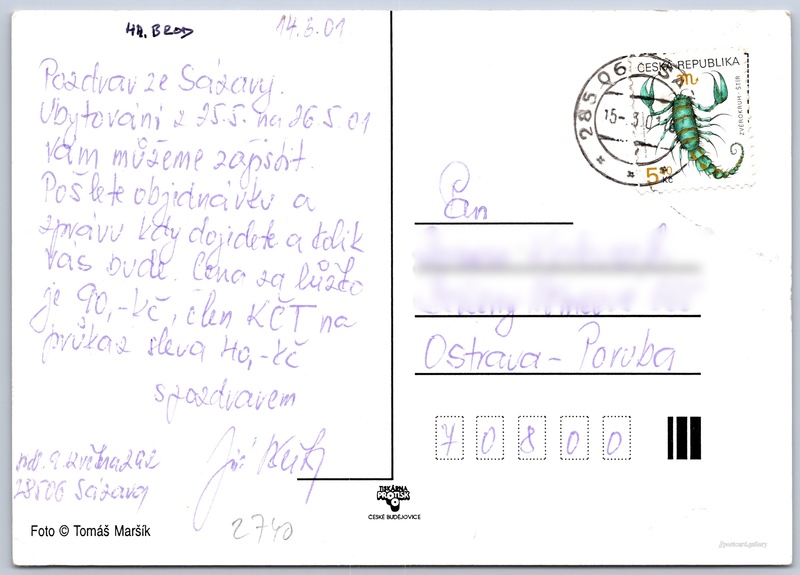 HA. BROD
14.3.01
Pozdrav ze Sázavy.
Ubytování z 25.5. na 26.5.01
vám můžeme zajistit.
Pošlete objednávku a
zprávu kdy dojdete a kolik
vás bude. Cena za lůžko
je 90,-Kč, člen KČT na
průkaz sleva 40,-Kč
s pozdravem
Jiří
nář. 9. května 292
28506 Sázava
2740
Foto © Tomáš Maršík
TISKÁRNA
PROTISK
ČESKÉ BUDĚJOVICE
285 06
15.-3.01
ČESKÁ REPUBLIKA
ZVĚROKRUH - ŠTÍR
5 40
Kč
Pan
Ostrava - Poruba
7 0 8 0 0
//postcard.gallery